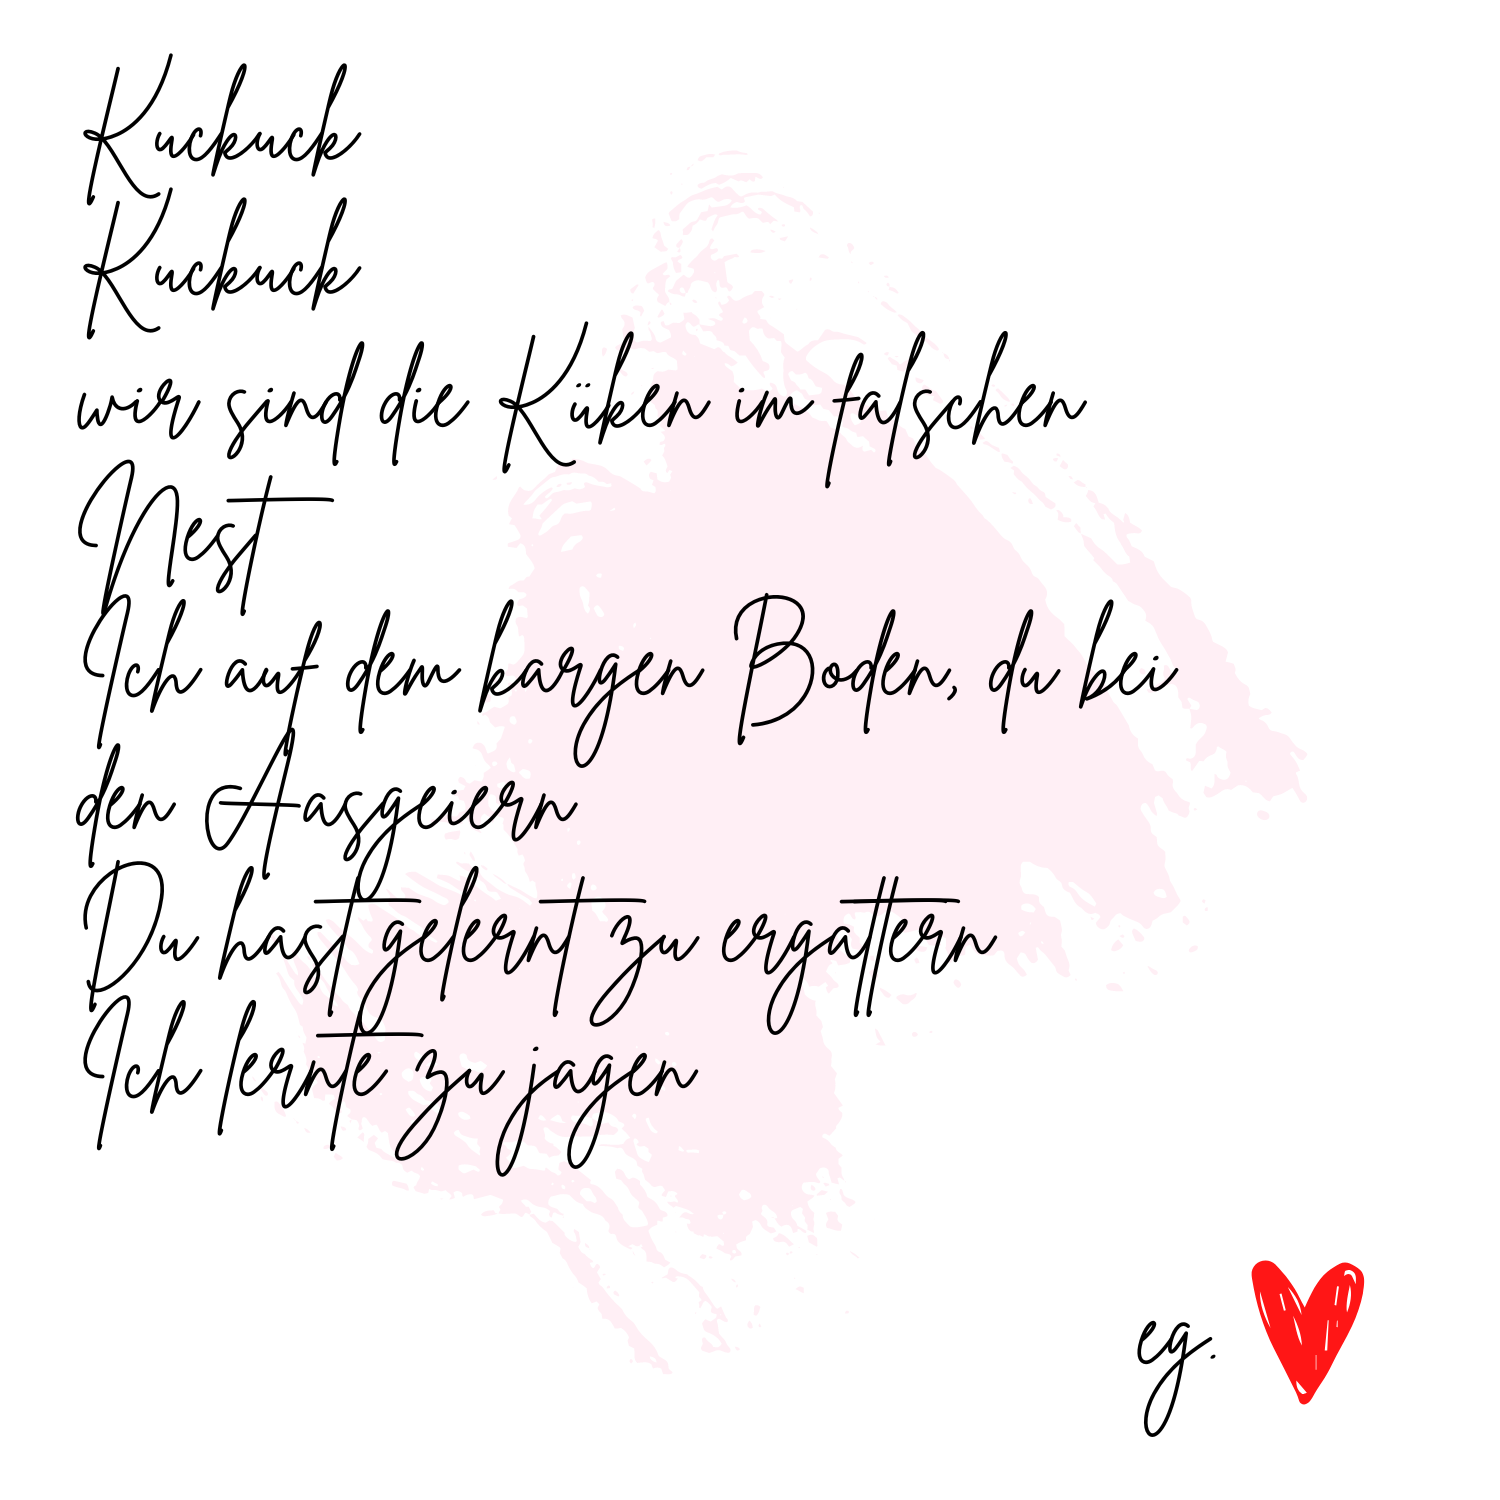 Kuckuck
Kuckuck
wir sind die Küken im falschen
Nest
Ich auf dem kargen Boden, du bei
den Aasgeiern
Du hast gelernt zu ergattern
Ich lernte zu jagen
eg.